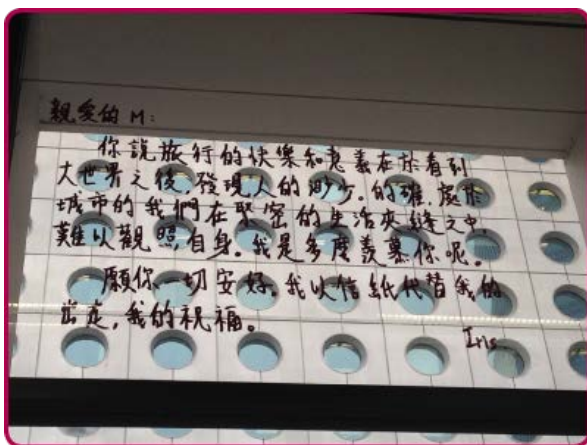 親愛的 M：
你說旅行的快樂和意義在於看到
大世界之後，發現人的渺少。的確，處於
城市的我們在緊密的生活夾縫之中，
難以觀照自身。我是多麼羨慕你呢。
願你一切安好。我以信紙代替我的
出走，我的祝福。
Iris